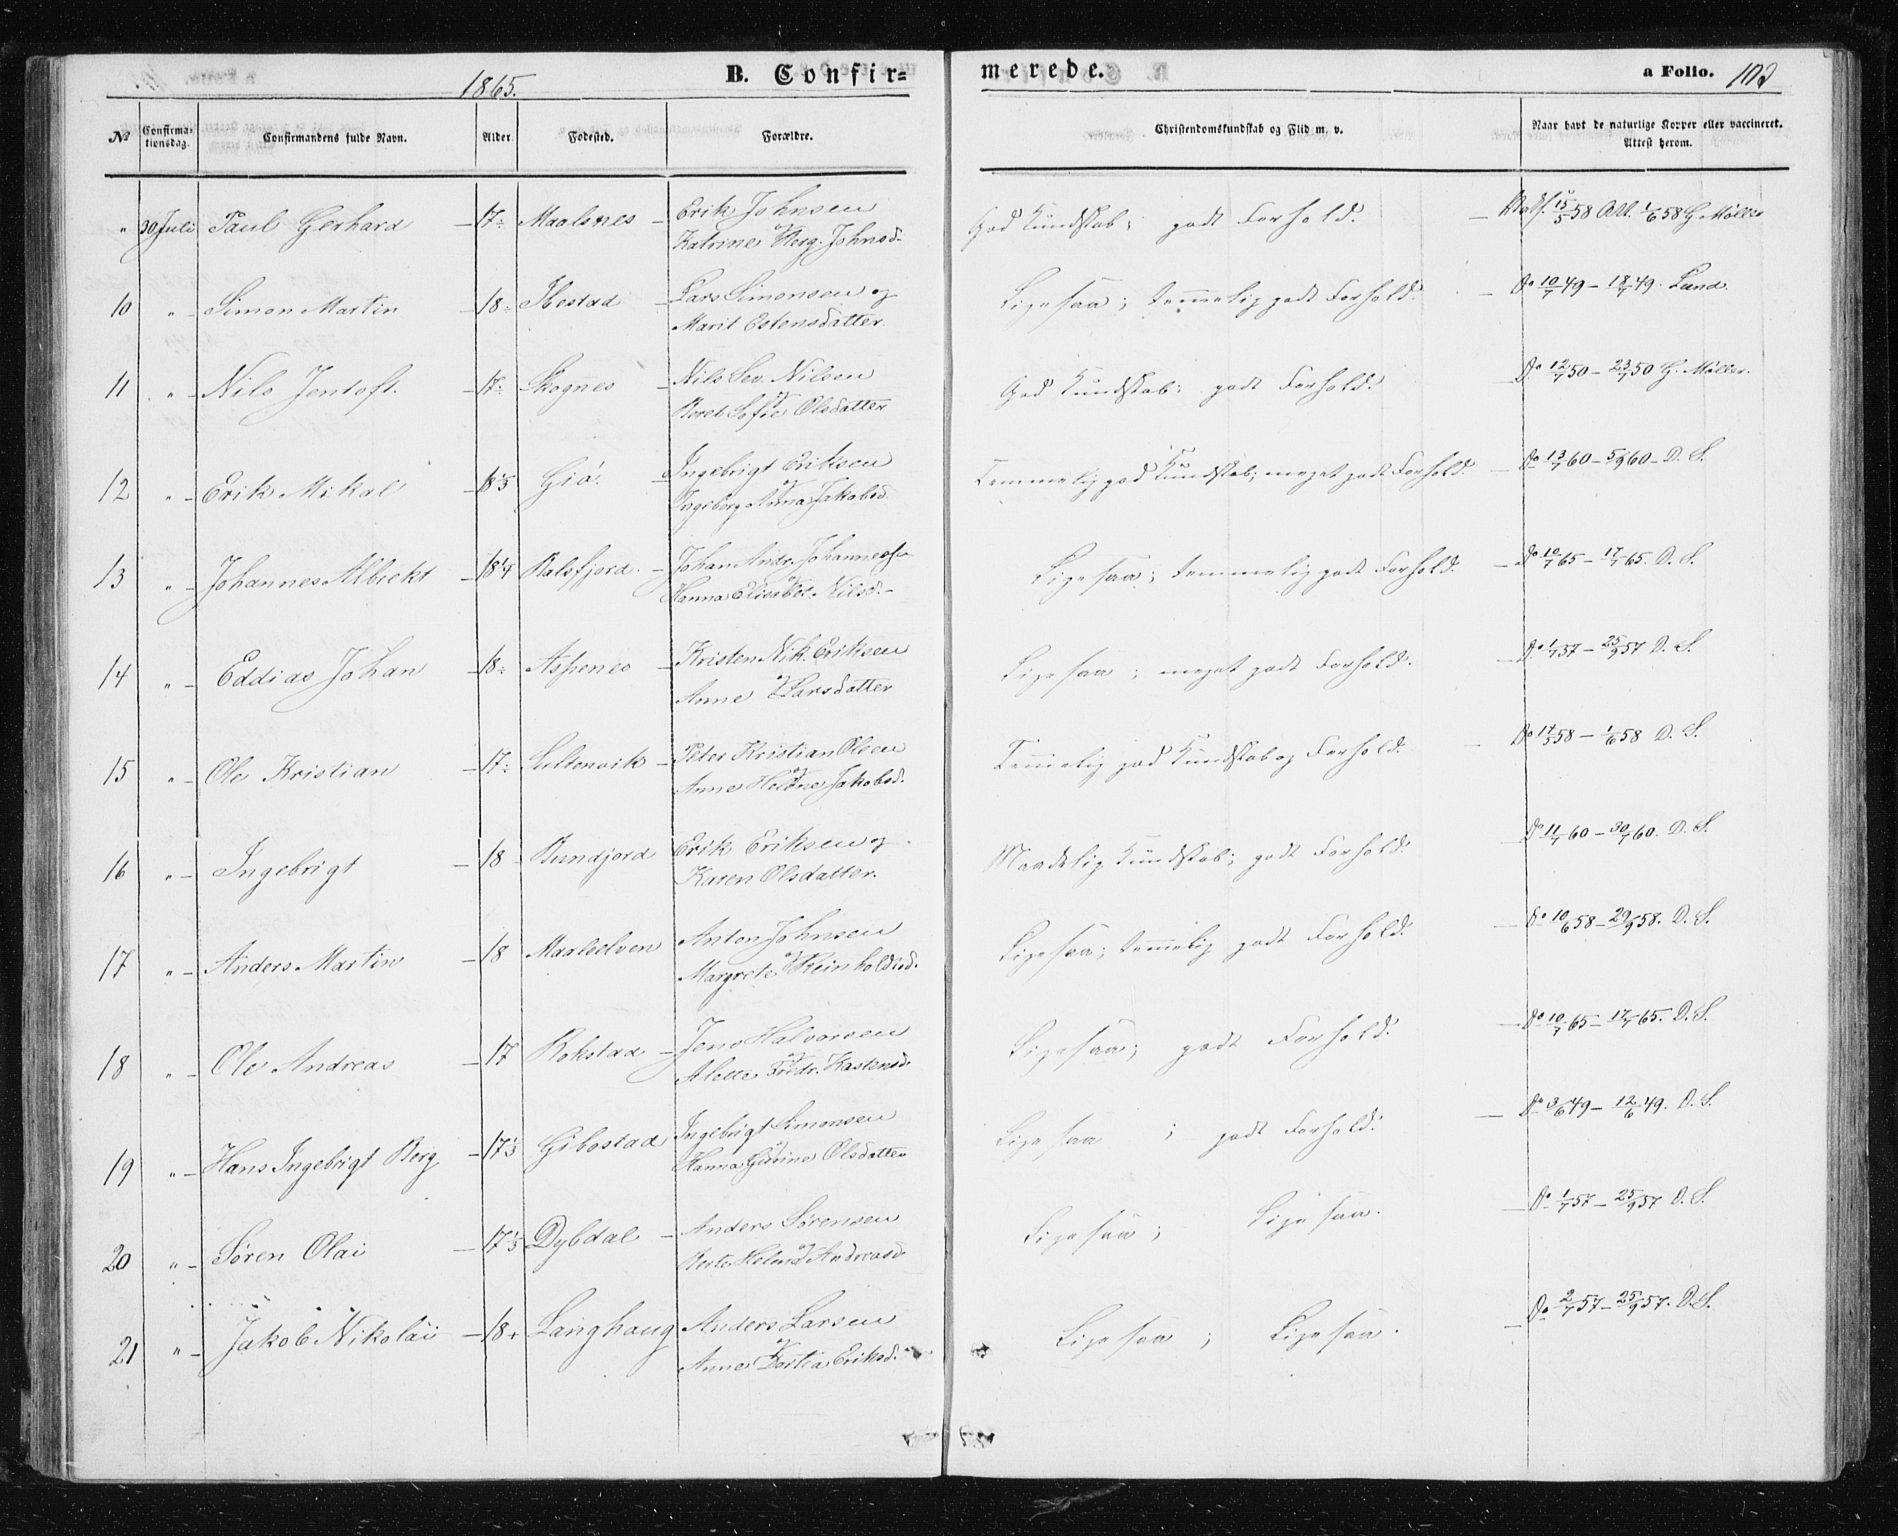 1865. B. Confir= merede. a Folio. 102
№ Confirma-tionsdag. Confirmandens fulde Navn. Alder. Fødested. Forældre. Christendomskundskab og Flid m. v. Naar havt de naturlige Kopper eller vaccineret. Attest herom.
" 30 Juli Paul Gerhard 17 Maalsnes Erik Johnsen God Kundskab; godt Forhold. 15/5 58 Att. 1/6 58 G. Møller
og Katrine Berg. Johnsd.
10 " Simon Martin 18 Ibestad Lars Simonsen og Ligesaa; temmelig godt Forhold. Do 10/7 49 - 18/7 49. Lund.
Marit Estensdatter.
11 " Nils Jentoft. 17 Skognes Nils Sev. Nilsen God Kundskab; godt Forhold. Do 12/7 50 - 23/7 50 G. Møller.
og Beret Sofie Olsdatter
12 " Erik Mikal 18 1/3 Giø. Ingebrigt Eriksen Temmelig god Kundskab; meget godt Forhold. Do 13/7 60 - 5/9 60 - D. S.
og Ingeborg Anna Jakobsd.
13 " Johannes Albrekt 18 1/4 Balsfjord. Johan Andr. Johannessn Ligesaa; temmelig godt Forhold. Do 10/7 65 - 17/7 65. D. S.
og Hanna Elisabet Nilsd.
14 " Eddias Johan 18 Aspenes Kristen Nik. Eriksen Ligesaa; meget godt Forhold. Do 1/7 57 - 25/9 57 D. S.
og Anne Larsdatter
15 " Ole Kristian 17 Sultenvik Peter Kristian Olsen Temmelig god Kundskab og Forhold. Do 17/5 58 - 1/6 58 D. S.
og Anne Helene Jakobsd.
16 " Ingebrigt 18 Bundjord Erik Eriksen og Maadelig Kundskab; godt Forhold. Do 11/7 60 - 30/7 60. D. S.
Karen Olsdatter.
17 " Anders Martin 18 Maaleelven Anton Johnsen Ligesaa; temmelig godt Forhold. Do 10/6 58 - 29/9 58. D. S.
og Margrete Reinholdtsd.
18 " Ole Andreas 17 Rokstad Jens Halvorsen Ligesaa; godt Forhold. Do 10/7 65 - 17/7 65. D. S.
og Alette Fredr. Kastensd.
19 " Hans Ingebrigt Berg 17 1/3 Gibostad Ingebrigt Simonsen Ligesaa; godt Forhold. Do 3/6 49 - 12/6 49. D. S.
og Hanna Gurine Olsdatter
20 " Søren Olai 17 1/3 Dybdal Anders Sørensen Ligesaa; Ligesaa. Do 1/7 57 - 25/9 57 D. S.
og Berte Helene Andreasd.
21 " Jakob Nikolai 18 Langhaug Anders Larsen Ligesaa; Ligesaa. Do 2/7 57 - 25/9 57. D. S.
og Anne Dortea Eriksd.